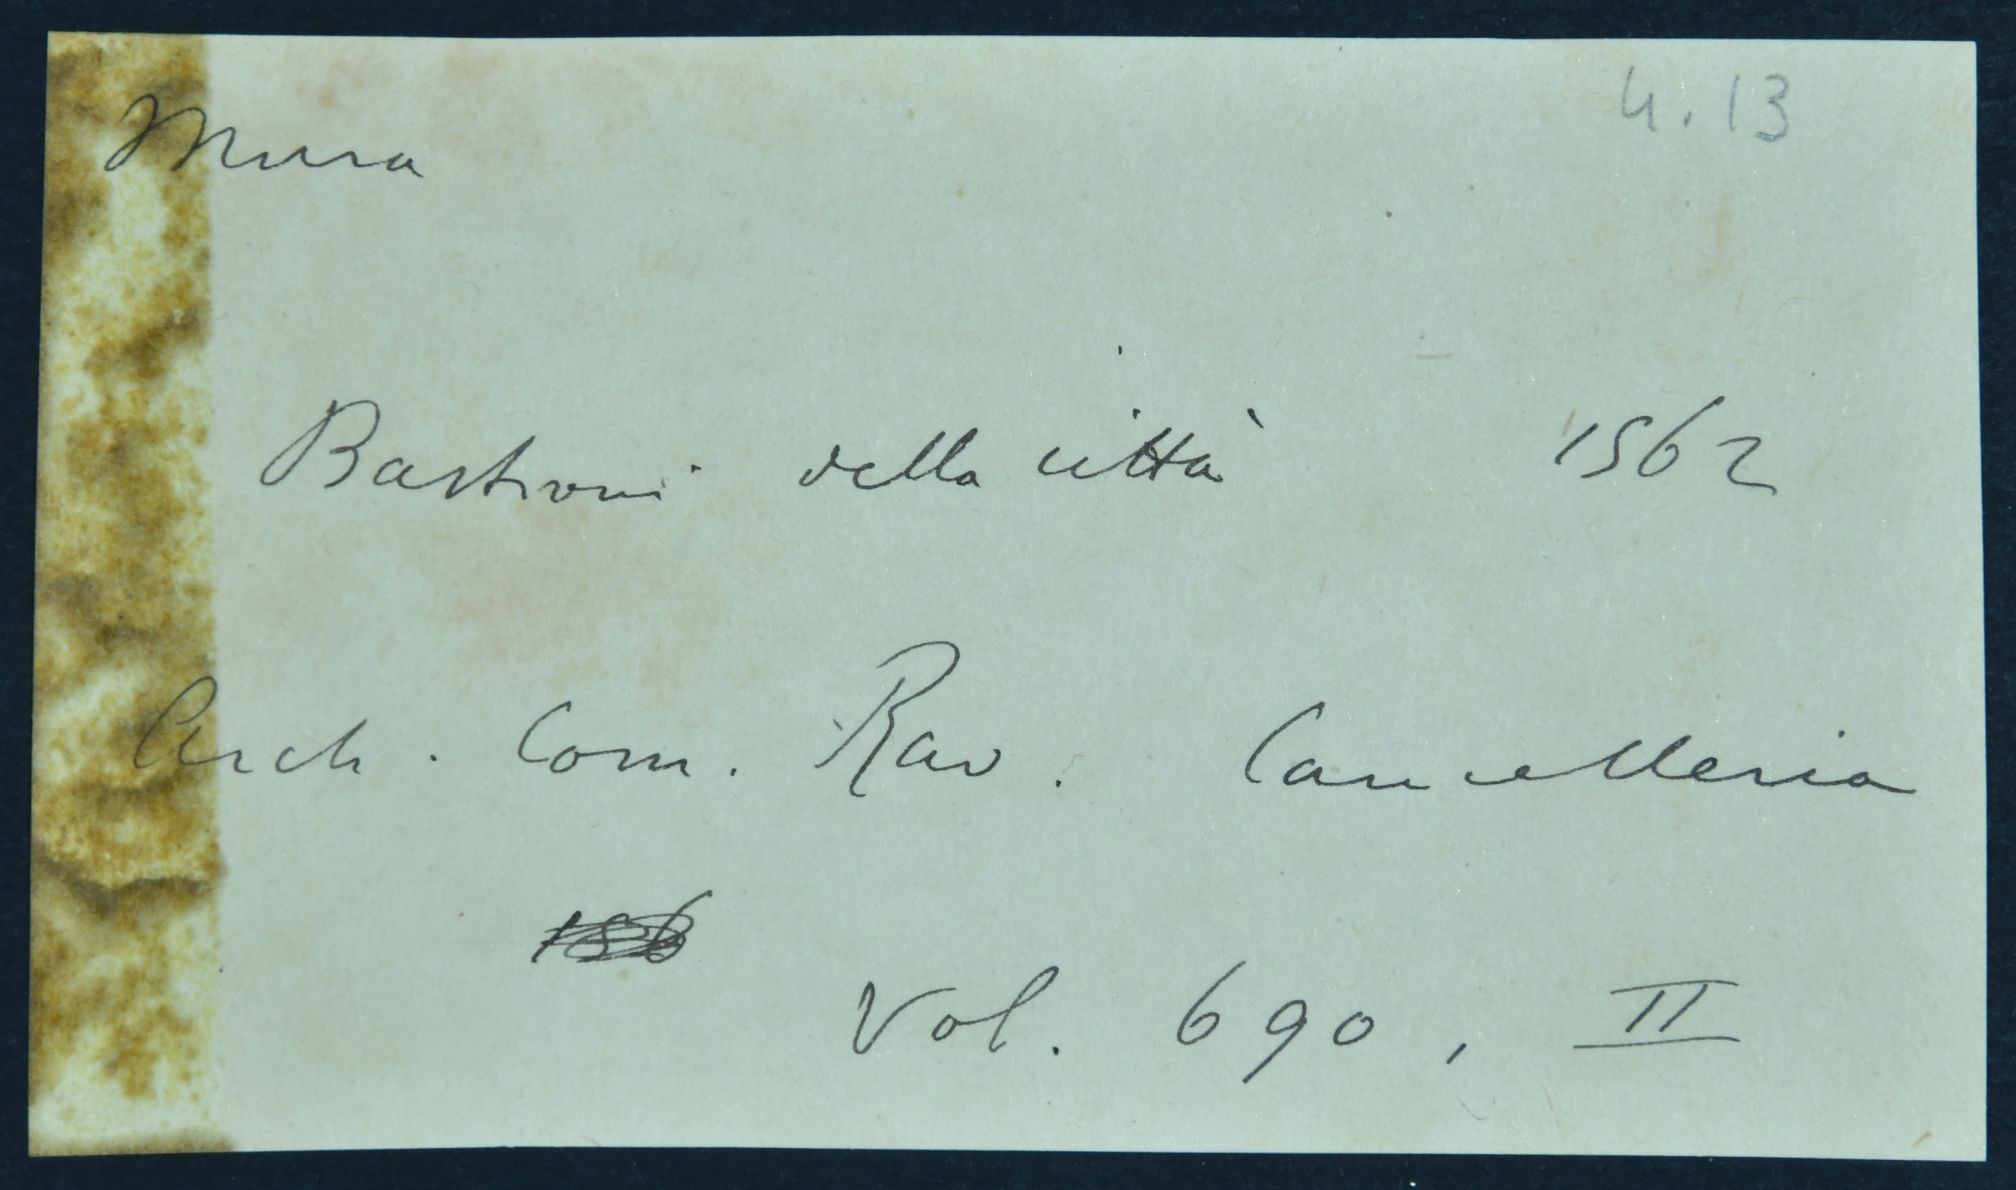 4.13
Mura
Bastioni della città 1562
Arch. Com. Rav. Cancelleria
Vol. 690, II